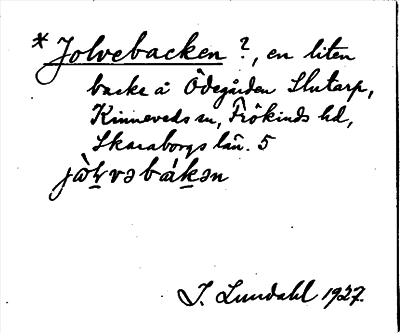 * Jolvebacken ?, en liten
backe å Ödegården Slutarp,
Kinneveds sn, Frökinds hd,
Skaraborgs län. 5
I. Lundahl 1927.